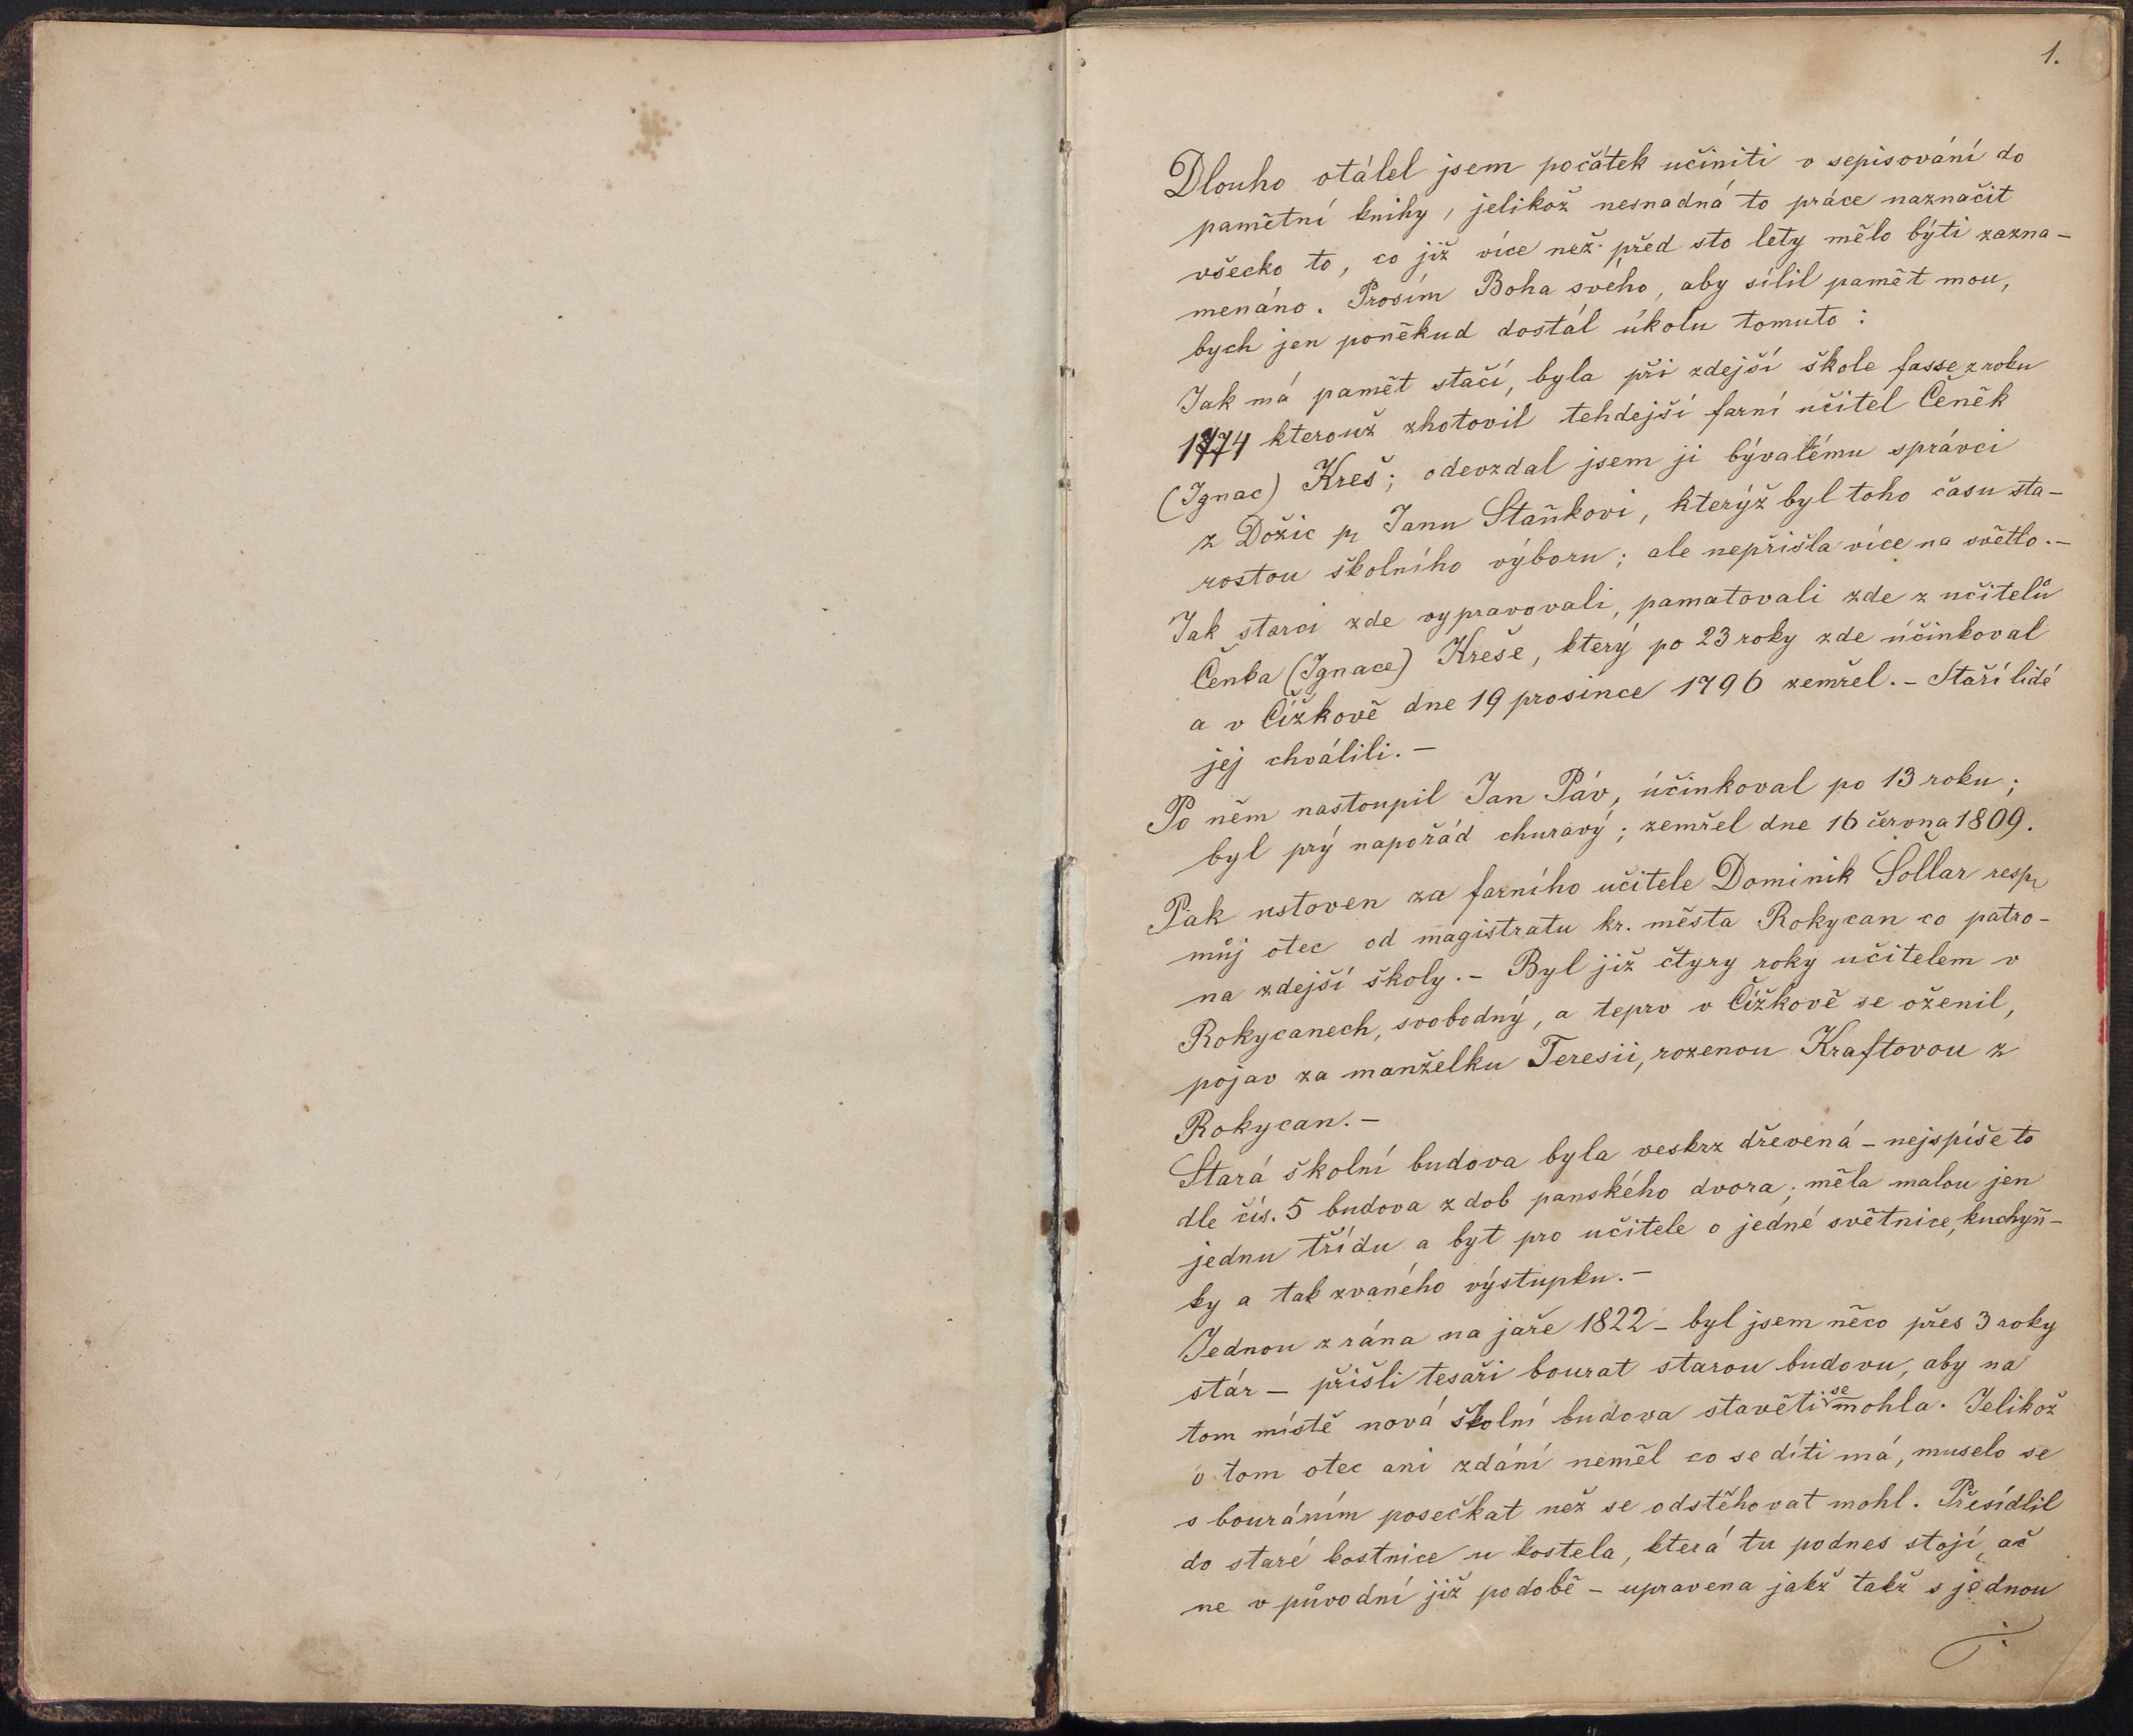 1.
Dlouho otálel jsem počátek učiniti v sepisování do
pamětní knihy, jelikož nesnadná to práce naznačit
všecko to, co již více než před sto lety mělo býti zazna-
menáno. Prosím Boha svého, aby sílil pamět mou,
bych jen poněkud dostál úkolu tomuto:
Jak má pamět stačí, byla při zdejší škole fasse z roku
1774 kterouž zhotovil tehdejší farní učitel Čeněk
(Ignac) Kreš; odevzdal jsem ji bývalému správci
z Dožic p. Janu Staňkovi, kterýž byl toho času sta-
rostou školního výboru; ale nepřišla více na světlo.-
Jak starci zde vypravovali, pamatovali zde z učitelů
Čenka (Ignace) Kreše, který po 23 roky zde účinkoval
a v Čížkově dne 19 prosince 1796 zemřel.- Staří lidé
jej chválili.-
Po něm nastoupil Jan Páv, účinkoval po 13 roku;
byl prý napořád churavý; zemřel dne 16 června 1809.
Pak ustoven za farního učitele Dominik Šollar resp.
můj otec od magistratu kr. města Rokycan co patro-
na zdejší školy.- Byl již čtyry roky učitelem v
Rokycanech, svobodný, a teprv v Čížkově se oženil,
pojav za manželku Teresii, rozenou Kraftovou z
Rokycan.-
Stará školní budova byla veskrz dřevená - nejspíše to
dle čís. 5 budova z dob panského dvora; měla malou jen
jednu třídu a byt pro učitele o jedné světnice, kuchyň-
ky a tak zvaného výstupku.-
Jednou z rána na jaře 1822 - byl jsem něco přes 3 roky
stár - přišli tesaři bourat starou budovu, aby na
tom místě nová školní budova stavěti se mohla. Jelikož
o tom otec ani zdání neměl co se díti má, muselo se
s bouráním posečkat než se odstěhovat mohl. Přesídlil
do staré kostnice u kostela, která tu podnes stojí, ač
ne v původní již podobě - upravena jakž takž s jednou